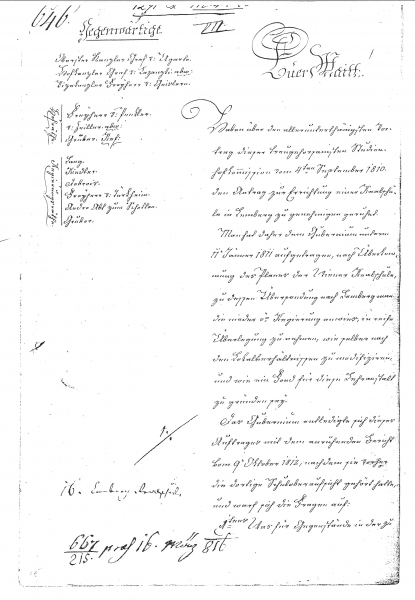 646.
Gegenwärtige.
III
Oberster Kanzler Graf v: Ugarte.
Hofkanzler Graf v: Lazanzky abw:
Vizekanzler Freyherr v: Geislern.
Euer Maitt!
Hofräthe
Freyherr v: 
v: Zeiller abw:
Gruber. Ref:
Lang.
Jacobois.
Freyherr v: Türkheim.
Andre Abt zum Schotten.
Gruber.
Haben über den allerunterthänigsten Vor-
trag dieser treugehorsamsten Studien-
hofkommission vom 4ten September 1810.
den Antrag zur Errichtung einer Realschu-
le in Lemberg zu genehmigen geruhet.
Man hat daher dem Gubernium unterm
11 Jäner 1811 aufgetragen, nach Überkom-
mung des Planes der Wiener Realschule,
zu dessen Übersendung nach Lemberg man
die nieder ö: Regierung anwies, in reife
Überlegung zu nehmen, wie selber nach
den Lokalverhältnissen zu modifiziren,
und wie ein Fond für diese Lehranstalt
zu gründen sey.
Das Gubernium entledigte sich dieses
Auftrages mit dem anruhenden Bericht
vom 9 Oktober 1812, nachdem sie vorher
die dortige Schuloberaufsicht gehört hatte,
und warf sich die Fragen auf:
1tens Was für Gegenstände in der zu
1./.
16. Lemberg Realschule.
667
215. praes 16. März 816